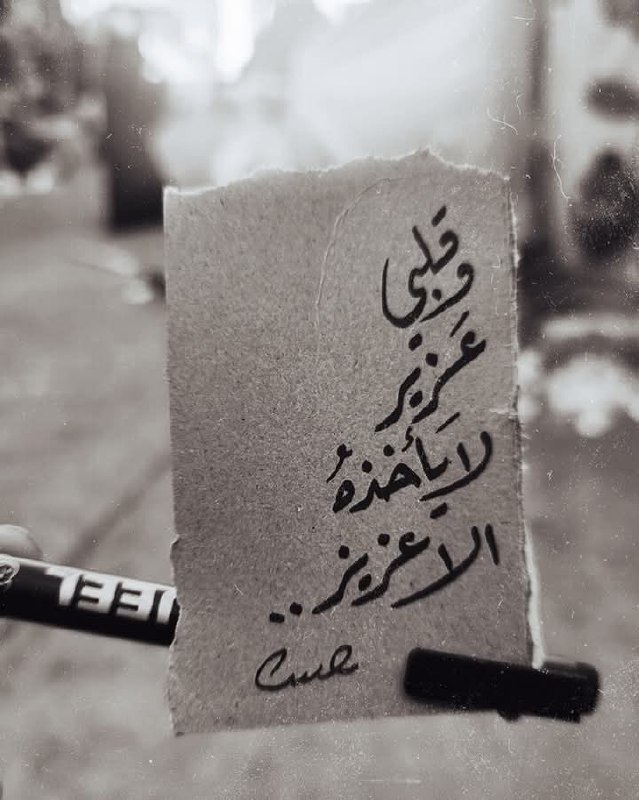 وقلبي
عَزيز
لا يَأخذهُ
الا عزيز..
JEEL